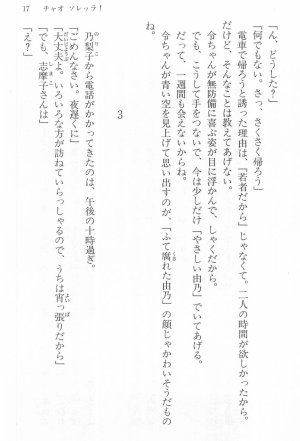 17　チャオ ソレッラ！
「ん、どうした？」
「何でもない。さっ、さくさく帰ろう」
電車で帰ろうと誘った理由は、「若者だから」じゃなくて。二人の時間が欲しかったから。
だけど、そんなことは教えてあげない。
令ちゃんが無防備に喜ぶ姿が目に浮かんで、しゃくだから。
でも、こうして手をつないで、今は少しだけ「やさしい由乃」でいてあげる。
だって、一週間も会えないからね。
令ちゃんが青い空を見上げて思い出すのが、「ふて腐れた由乃」の顔じゃかわいそうだもの
ね。
3
乃梨子から電話がかかってきたのは、午後の十時過ぎ。
「ごめんなさい。夜遅くに」
「大丈夫よ。いろいろな方が訪ねていらっしゃるので、うちは宵っ張りだから」
「でも、志摩子さんは――」
「え？」